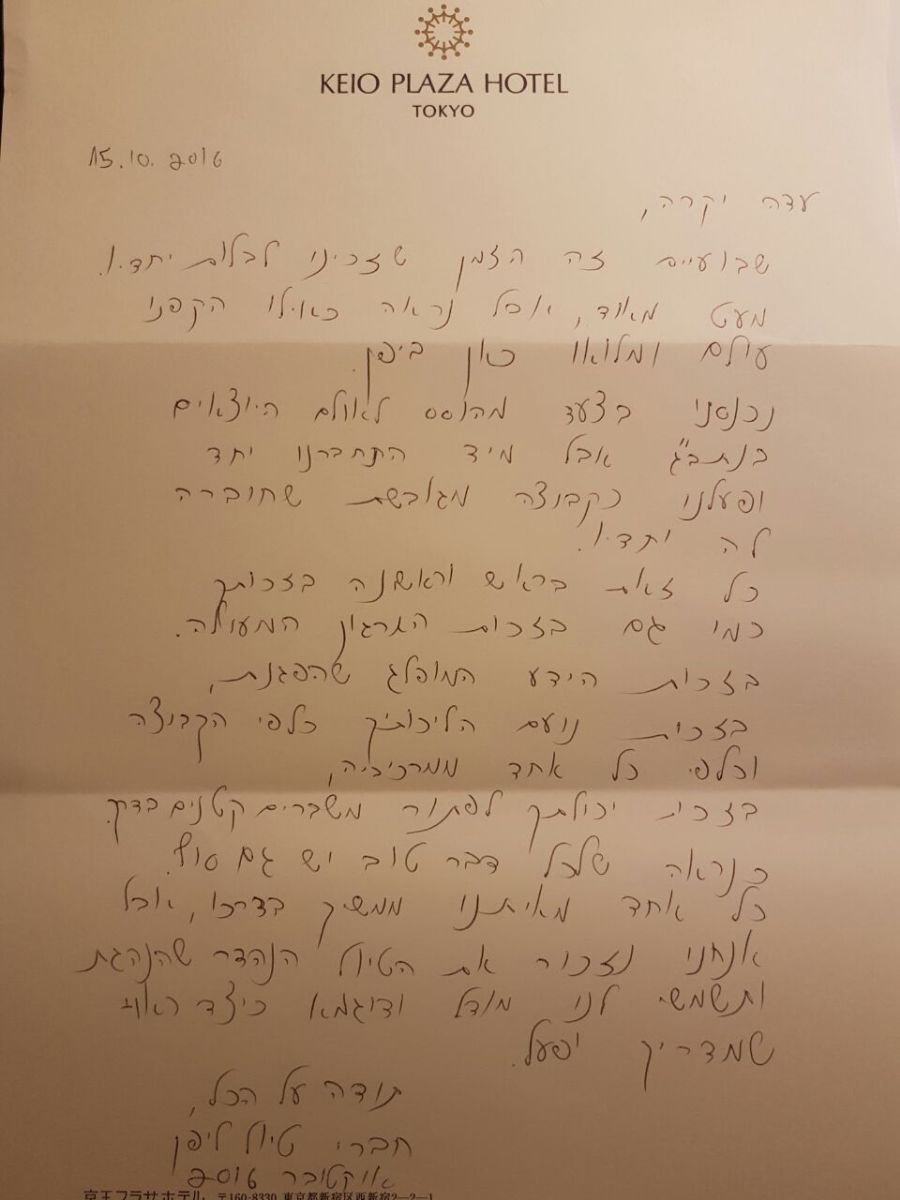 KEIO PLAZA HOTEL
TOKYO
15.10.2016
עדה יקרה,
שבועיים זה הזמן שזכינו לבלות יחדיו.
מעט מאוד, אבל נראה כאילו הקפנו
עולם ומלואו כאן ביפן.
נכנסנו בצעד מהוסס לאולם היוצאים
בנתב"ג אבל מיד התחברנו יחד
ופעלנו כקבוצה מגובשת שחוברה
לה יחדיו.
כל זאת בראש וראשנה בזכותך
כמו גם בזכות הארגון המעולה.
בזכות הידע המופלג שהפגנת,
בזכות נועם הליכותיך כלפי הקבוצה
וכלפי כל אחד ממרכיביה,
בזכות יכולתך לפתור משברים קטנים בדרך.
כנראה שלכל דבר טוב יש גם סוף.
כל אחד מאיתנו ממשיך בדרכו, אבל
אנחנו נזכור את הטיול הנהדר שהנהגת
ותשמשי לנו מודל ודוגמא כיצד ראוי
שמדריך יפעל.
תודה על הכל,
חברי טיול ליפן
אוקטובר 2016
京王プラザホテル 〒160-8330 東京都新宿区西新宿2-2-1